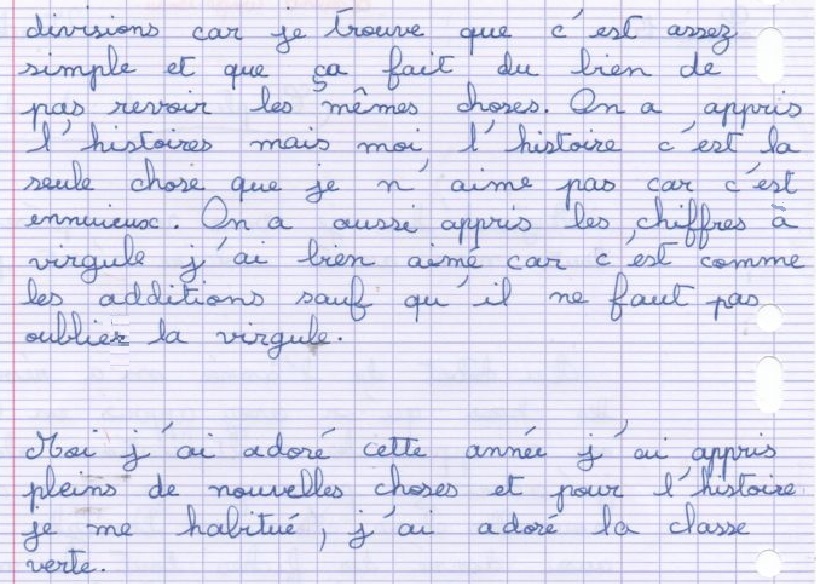 divisions car je trouve que c'est assez
simple et que ça fait du bien de
pas revoir les mêmes choses. On a appris
l'histoires mais moi l'histoire c'est la
seule chose que je n'aime pas car c'est
ennuieux. On a aussi appris les chiffres à
virgule j'ai bien aimé car c'est comme
les additions sauf qu'il ne faut pas
oublier la virgule.
Moi j'ai adoré cette année j'ai appris
pleins de nouvelles choses et pour l'histoire
je me habitué, j'ai adoré la classe
verte.